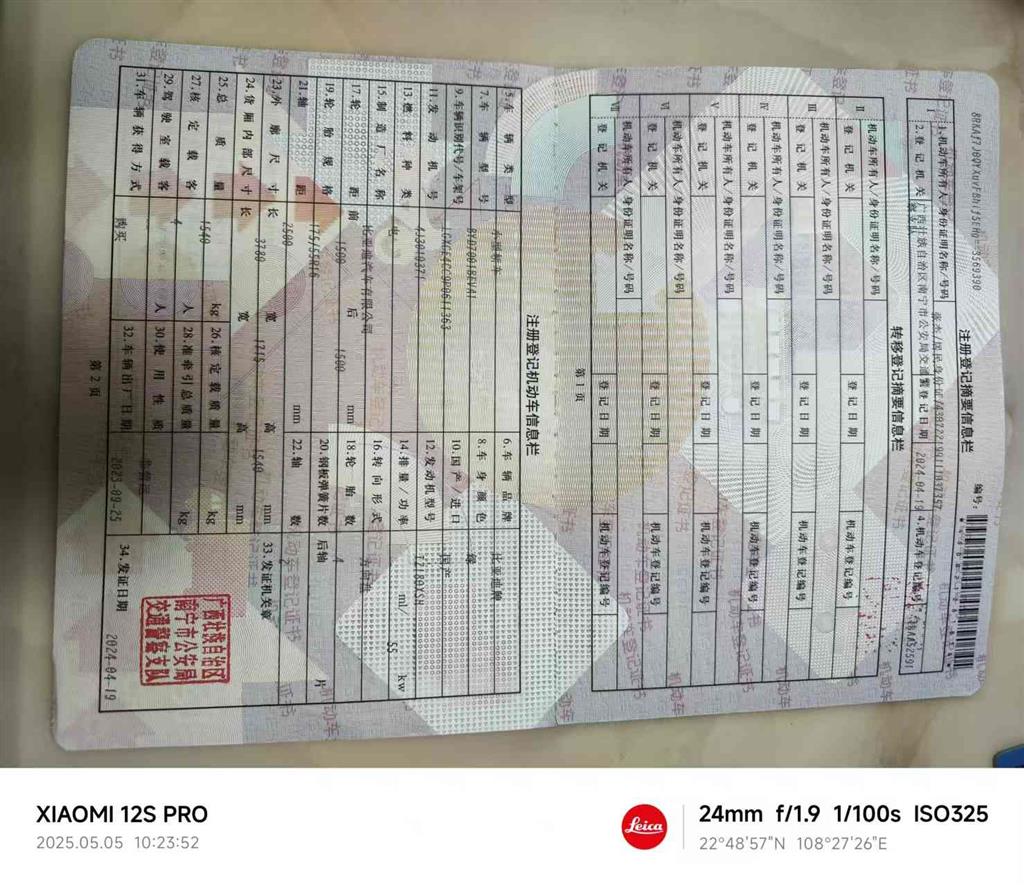 注册登记摘要信息栏
编号：
1.机动车所有人/身份证明名称/号码
2.登记机关 广西壮族自治区南宁市公安局交通警
登记日期 2024-04-19 4.机动车登记编号
转移登记摘要信息栏
Ⅱ 机动车所有人/身份证明名称/号码
登记机关 登记日期 机动车登记编号
Ⅲ 机动车所有人/身份证明名称/号码
登记机关 登记日期 机动车登记编号
Ⅳ 机动车所有人/身份证明名称/号码
登记机关 登记日期 机动车登记编号
Ⅴ 机动车所有人/身份证明名称/号码
登记机关 登记日期 机动车登记编号
Ⅵ 机动车所有人/身份证明名称/号码
登记机关 登记日期 机动车登记编号
Ⅶ 机动车所有人/身份证明名称/号码
登记机关 登记日期 机动车登记编号
第1页
注册登记机动车信息栏
5.车辆类型 小型轿车 6.车辆品牌 比亚迪牌
7.车辆型号 8.车身颜色 绿
9.车辆识别代号/车架号 10.国产/进口 国产
11.发动机号 12.发动机型号 TZ180XSH
13.燃料种类 电 14.排量/功率 ml/ 55 kw
15.制造厂名称 比亚迪汽车有限公司 16.转向形式 方向盘
17.轮距 前 1500 后 1500 mm 18.轮胎数 4
19.轮胎规格 175/55R16 20.钢板弹簧片数 后轴 片
21.轴距 2500 mm 22.轴数 2
23.外廓尺寸 长 3780 宽 1715 高 1540 mm 33.发证机关章
24.货厢内部尺寸 长 宽 高 mm
25.总质量 1540 kg 26.核定载质量 kg
27.核定载客 4 人 28.准牵引总质量 kg
29.驾驶室载客 人 30.使用性质 非营运
31.车辆获得方式 购买 32.车辆出厂日期 2023-09-25 34.发证日期 2024-04-19
广西壮族自治区
南宁市公安局
交通警察支队
第2页
XIAOMI 12S PRO
2025.05.05 10:23:52
Leica
24mm f/1.9 1/100s ISO325
22°48'57"N 108°27'26"E